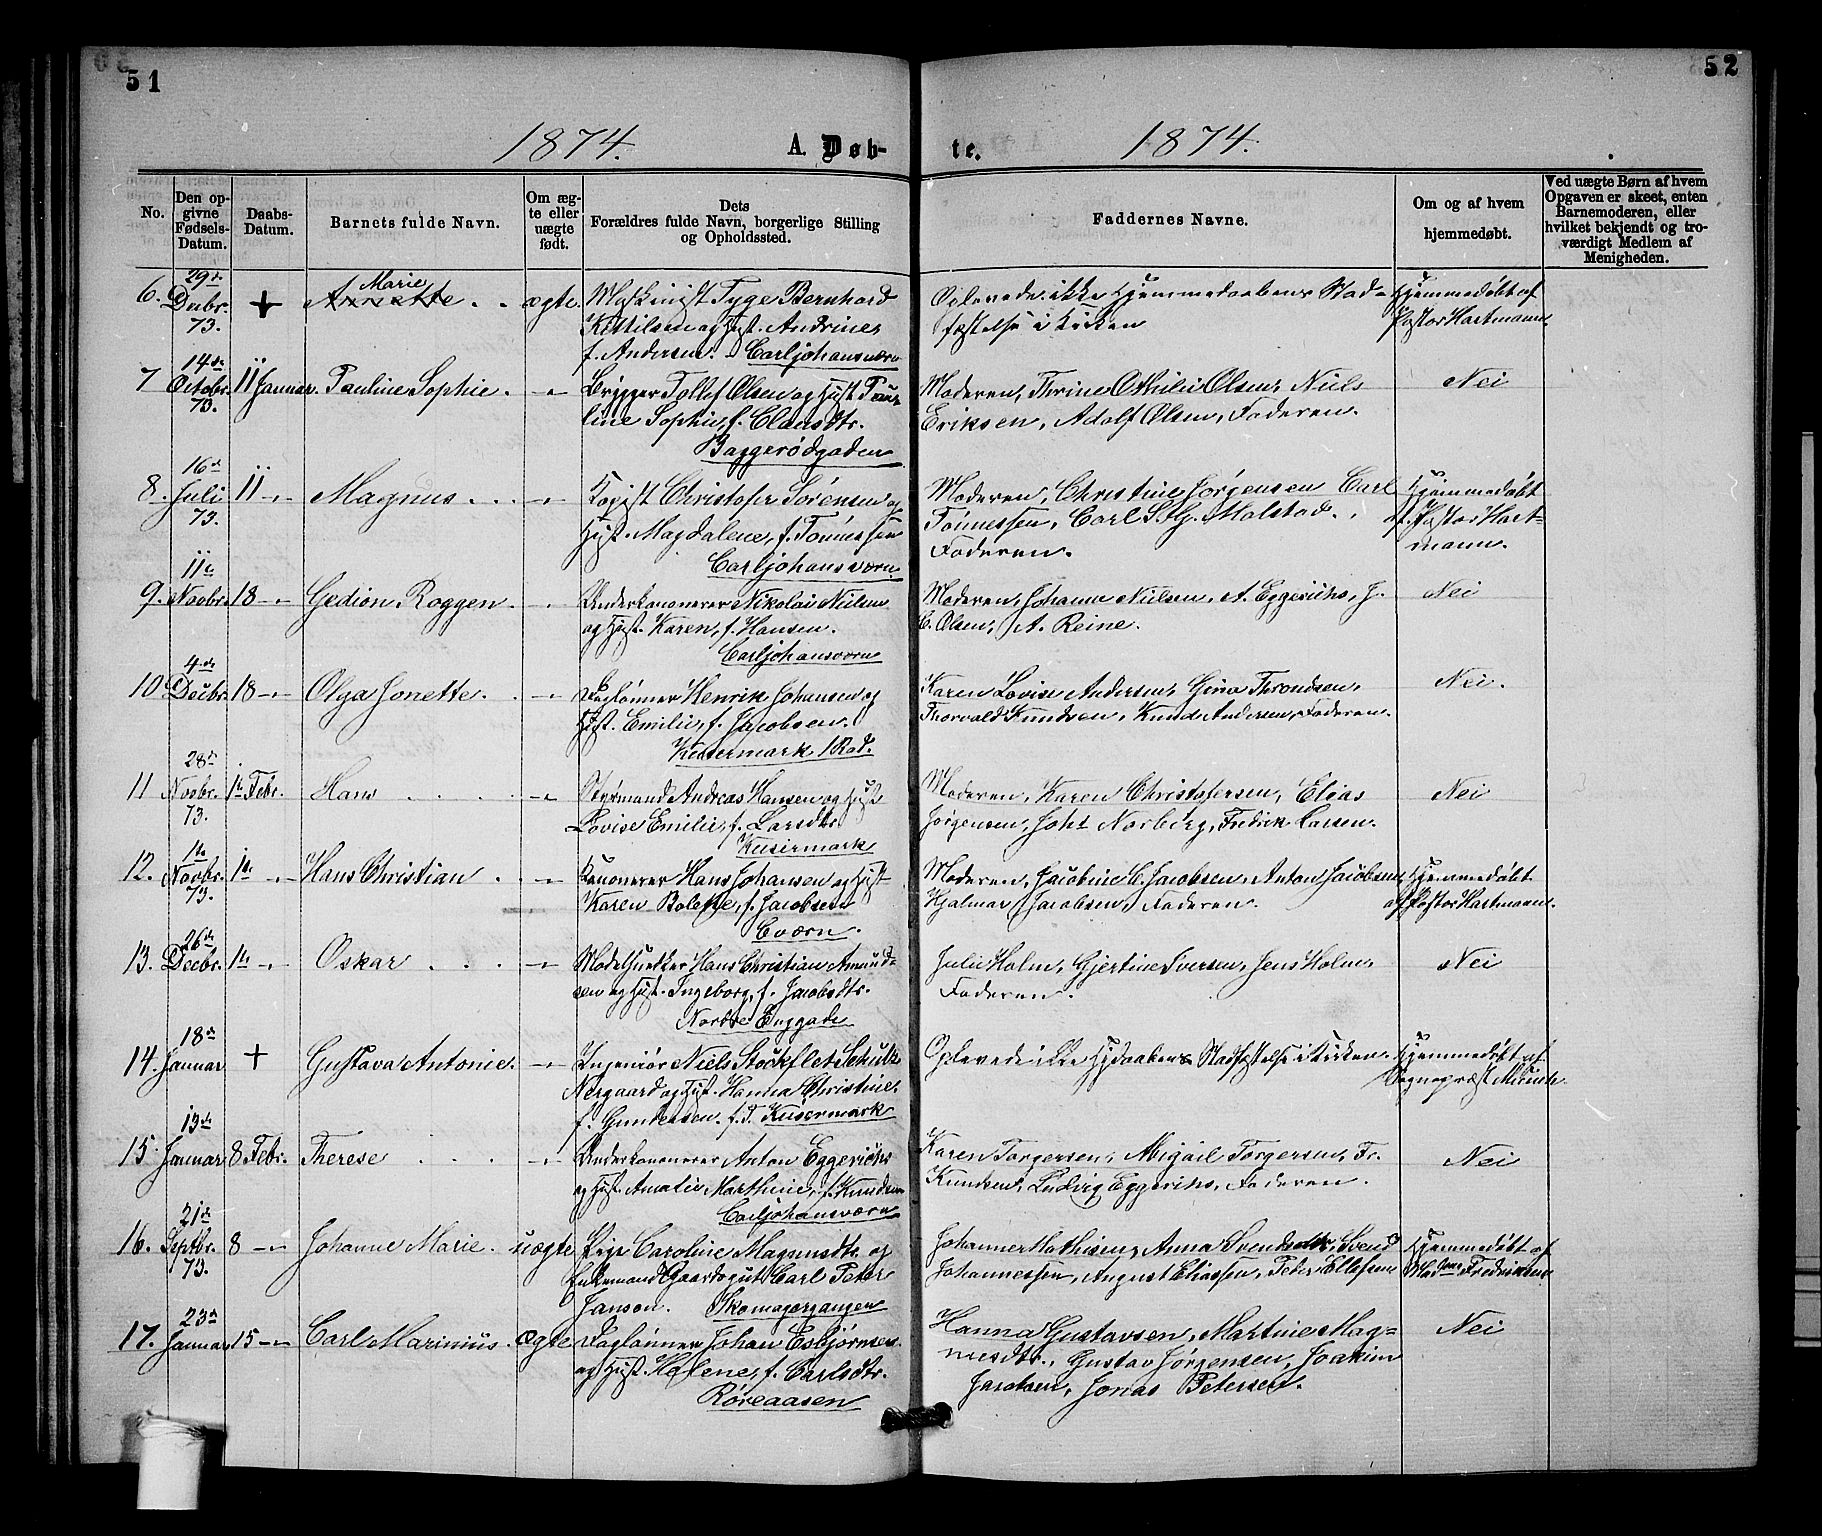 51
52
1874.
A. Døb-
te.
1874.
No.
Den op-
givne
Fødsels-
Datum.
Daabs-
Datum.
Barnets fulde Navn.
Om æg-
te eller
uægte
født.
Dets
Forældres fulde Navn, borgerlige Stilling
og Opholdssted.
Faddernes Navne.
Om og af hvem
hjemmedøbt.
Ved uægte Børn af hvem
Opgaven er skeet, enten
Barnemoderen, eller
hvilket bekjendt og tro-
værdigt Medlem af
Menigheden.
6. 29de Decbr. 73. + Marie Annette ægte Maskinist Tyge Bernhard
Kittilsen og Hust. Andrine,
f. Andersen. Carljohansværn
Oplevede ikke Hjemmedaabens Stad-
fæstelse i Kirken
Hjemmedøbt af
Pastor Hartmann.
7 14de Octobr. 73. 11 Januar. Pauline Sophie. -"- Brygger Tollef Olsen og Hust. Pau-
line Sophie, f. Clausdtr.
Baggerødgaden
Moderen, Thrine Othilie Olsen, Niels
Eriksen, Adolf Olsen, Faderen.
Nei
8. 16de Juli 73. 11 -"- Magnus. -"- Kopist Christofer Sørensen og
Hust. Magdalene, f. Tønnessen
Carljohansværn
Moderen, Christine Jørgensen Carl
Tønnessen, Carl S. G. Malstad.
Faderen.
Hjemmedøbt
af Pastor Hart-
mann.
9. 11te Novbr. 18 -"- Gedion Roggen. -"- Underkanonerer Nikolai Nielsen
og Hust. Karen, f. Hansen.
Carljohansværn
Moderen, Johanne Nielsen, A. Eggerichs, J.
C. Olsen, A. Reine.
Nei
10 4de Decbr. 18 -"- Olga Jonette. -"- Daglønner Henrik Johansen og
Hust. Emilie, f. Jacobsen.
Karen Lovise Andersen, Gina Throndsen,
Thorvald Knudsen, Knud Andersen, Faderen.
Nei.
11 28de Novbr. 73. 1te Febr. Hans -"- Styrmand Andreas Hansen og Hust.
Lovise Emilie, f. Larsdtr.
Moderen, Karen Christofersen, Elias
Jørgensen, Johs Norberg, Fredrik Larsen.
Nei
12. 1te Novbr. 73. 1te -"- Hans Christian -"- Kanonerer Hans Johansen og Hust.
Karen Bolette, f. Jacobsen
Cværn.
Moderen, Jacobine C. Jacobsen, Anton Jacobsen,
Hjalmar Jacobsen, Faderen.
Hjemmedøbt
af Pastor Hartmann.
13. 26de Decbr. 1te -"- Oskar -"- Modelsnedker Hans Christian Amund-
sen og Hust. Ingeborg, f. Jacobsdtr.
Nordre Enggade
Julie Holm, Gjertine Iversen, Jens Holm,
Faderen.
Nei
14. 18de Januar + Gustava Antonie. -"- Ingeniör Niels Stockflet Schultz
Nergaard og Hust. Hanna Christine,
f. Gundersen.
Oplevede ikke Hjdaabens Stadfæstelse i Kirken.
Hjemmedøbt af
Sognepræst Münch.
15. 13de Januar 8 Febr. Therese -"- Underkanonerer Anton Eggerichs
og Hust. Amalie Marthine, f. Knudsen
Carljohansværn
Karen Torgersen, Abigail Torgersen, Fr.
Knudsen, Ludvig Eggerichs, Faderen.
Nei
16. 21de Septbr. 73. 8 -"- Johanne Marie. uægte Pige Caroline Magnusdtr. og
Enkemand Gaardsgut Carl Peter
Janson. Skomagergangen
Johanne Mathisen, Anna Svendsdtr, Svend
Johannessen, August Eliassen, Peder Ellefsen
Hjemmedøbt af
Madame Fredriksen
17. 23de Januar 15 -"- Carl Marinius. ægte Daglønner Johan Esbjørnsen
og Hust. Helene, f. Carlsdtr.
Røreaasen
Hanna Gustavsen, Martine Mag-
nusdtr., Gustav Jørgensen, Joakim
Jacobsen, Jonas Petersen.
Nei